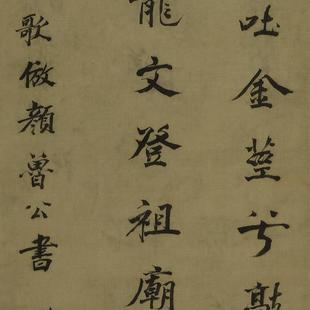 吐金莖兮歊
龍文登祖廟
歌倣顏魯公書